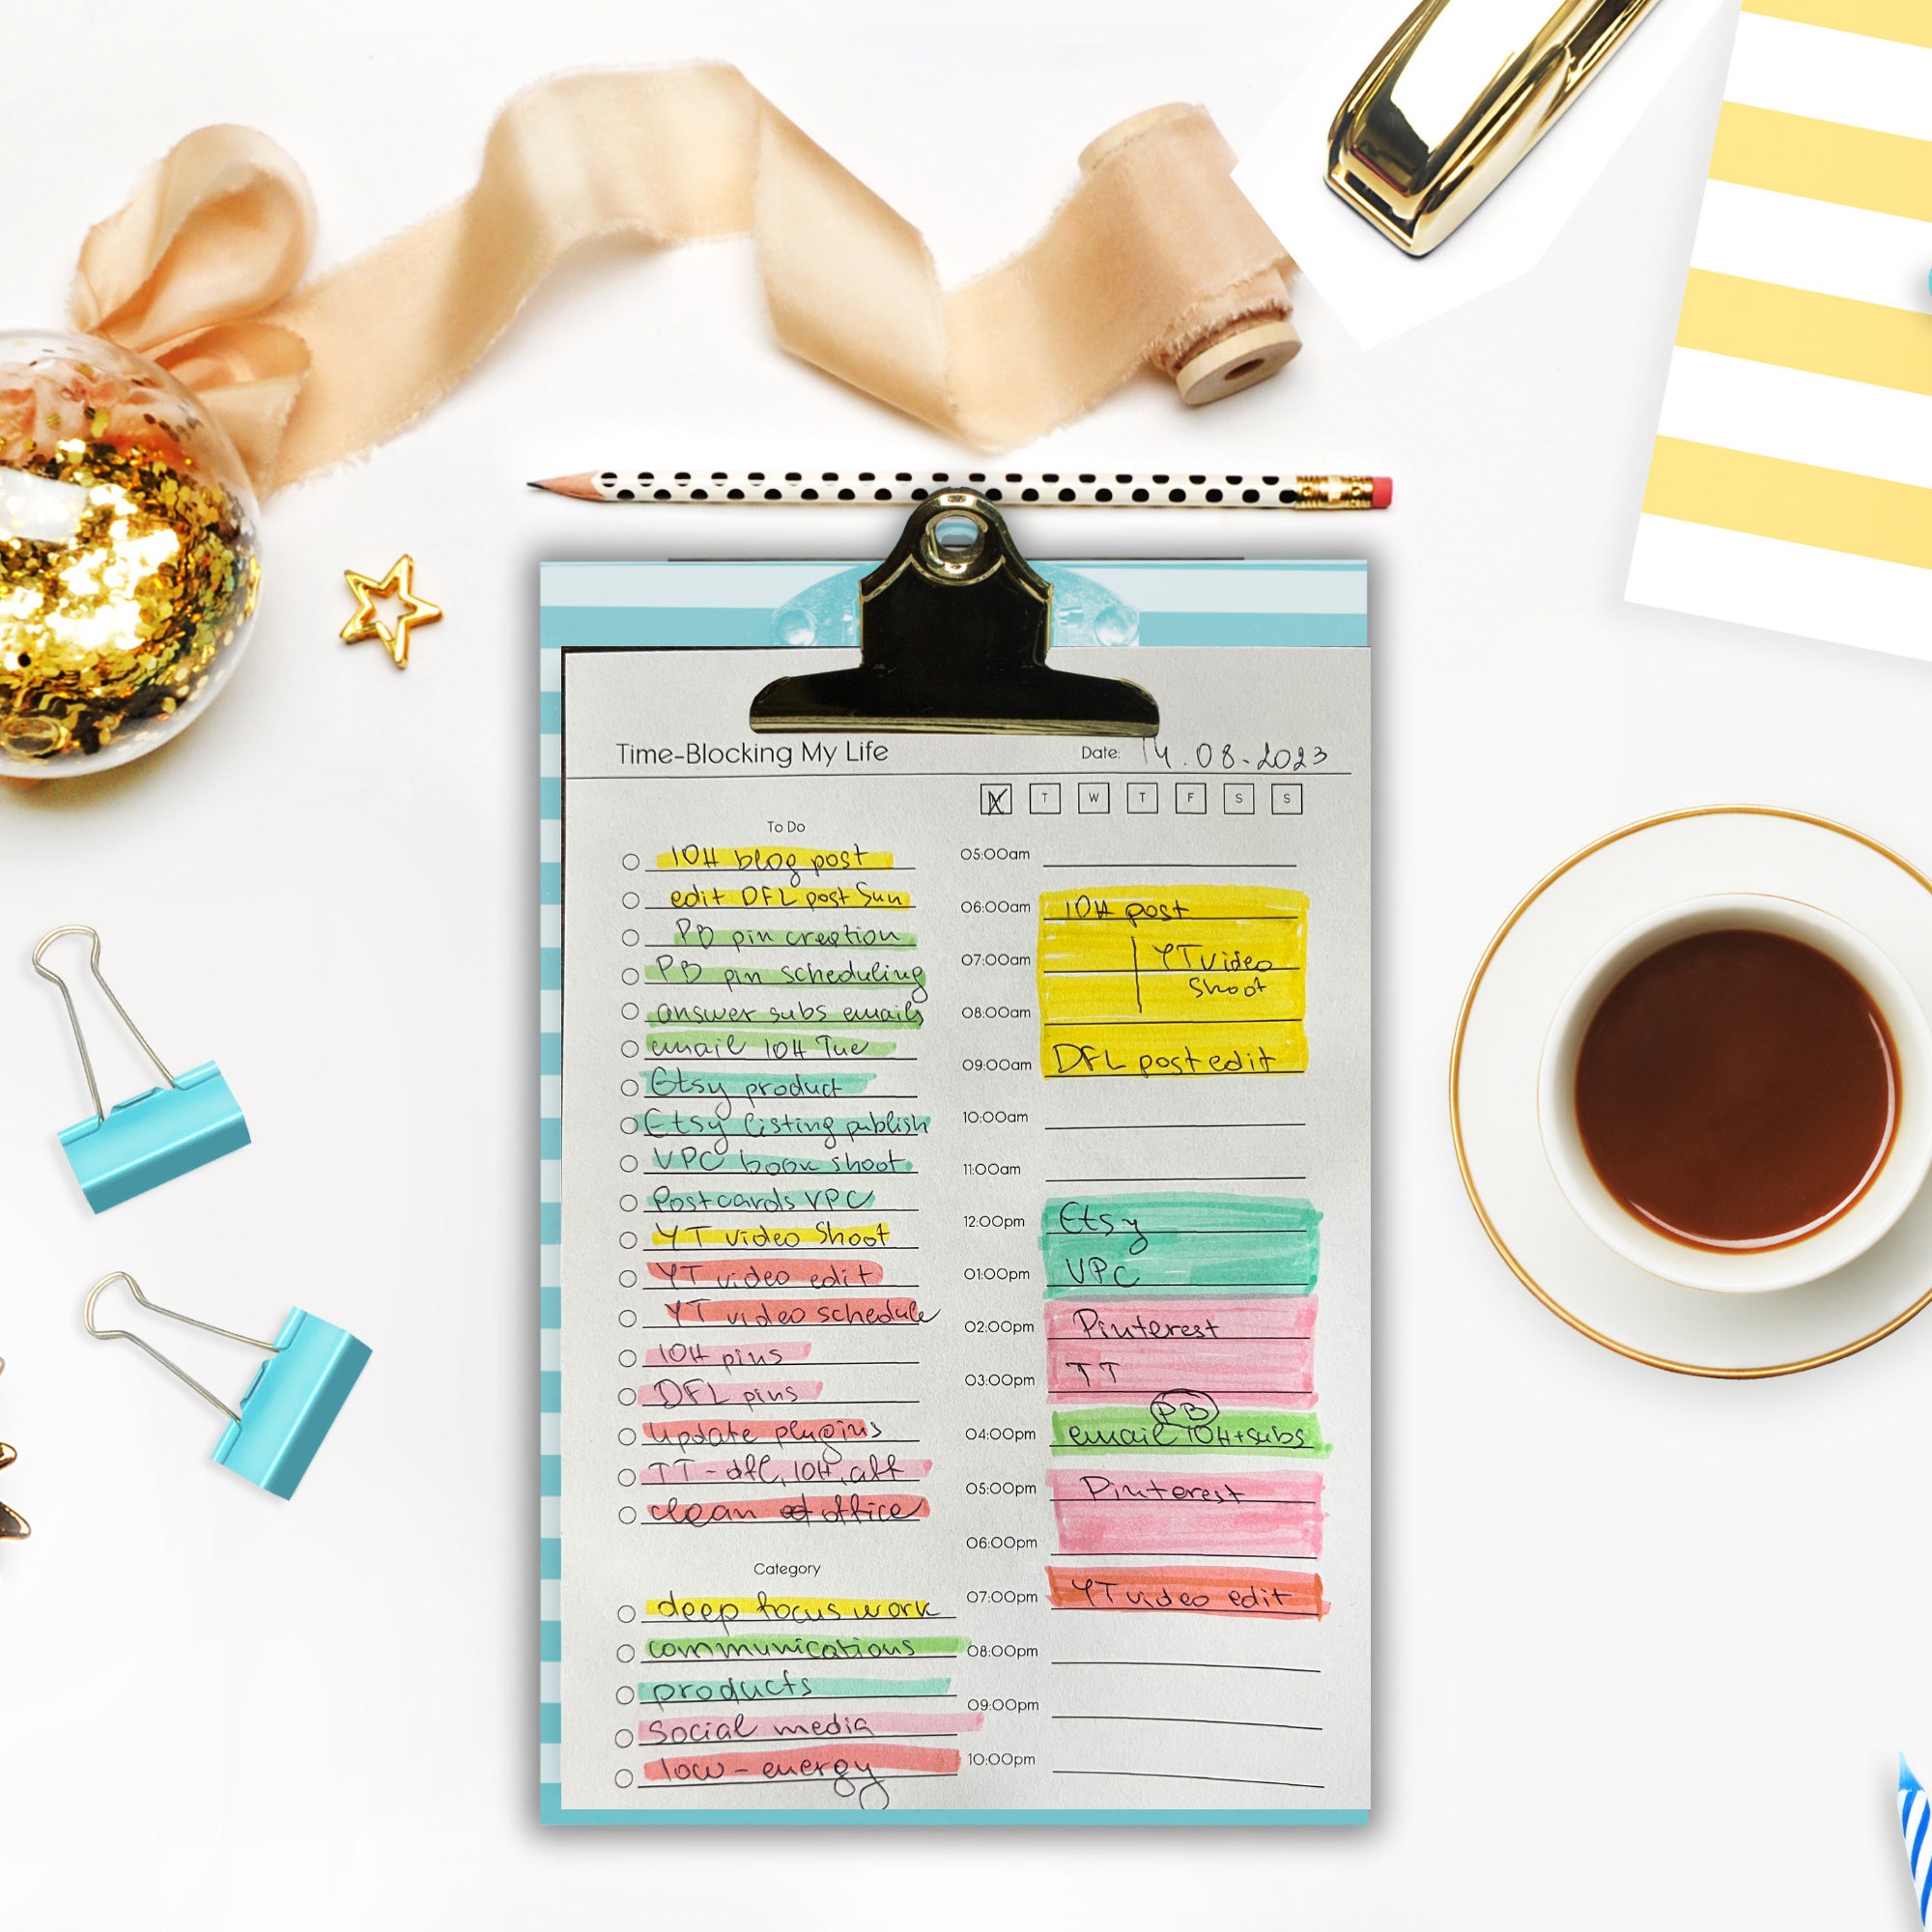 Time-Blocking My Life
Date: 14.08.2023
T W T F S S
To Do
10H blog post
edit DFL post Sun
PB pin creation
PB pin scheduling
answer subs emails
email 10H Tue
Etsy product
Etsy listing publish
VPC book shoot
Postcards VPC
YT video Shoot
YT video edit
YT video schedule
10H pins
DFL pins
update plugins
TT - dfl, 10H, aff
clean office
Category
deep focus work
communications
products
social media
low-energy
05:00am
06:00am 10H post
07:00am YT video
shoot
08:00am
09:00am DFL post edit
10:00am
11:00am
12:00pm Etsy
01:00pm VPC
02:00pm Pinterest
03:00pm TT
PB
04:00pm email 10H+subs
05:00pm Pinterest
06:00pm
07:00pm YT video edit
08:00pm
09:00pm
10:00pm